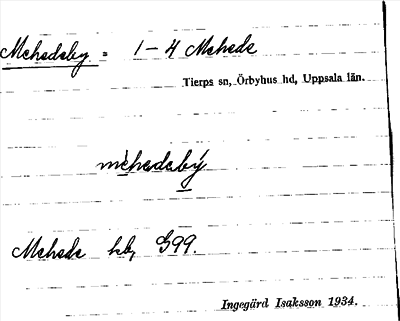 Mehedeby = 1-4 Mehede
Tierps sn, Örbyhus hd, Uppsala län.
mèhedebý
Mehede hb, G99.
Ingegärd Isaksson 1934.